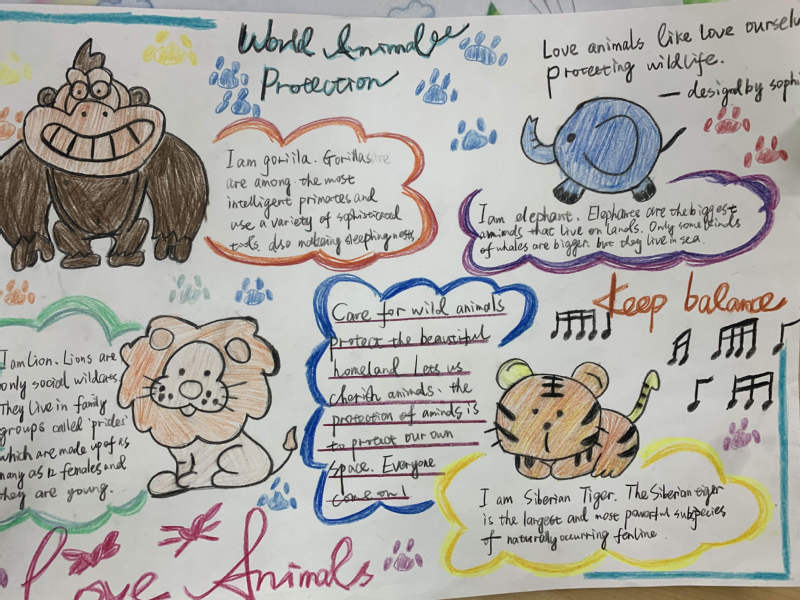 World Animals
Protection
Love animals like love ourselv
protecting wildlife.
— designed by sophi
I am goriila. Gorillas are
are among the most
intelligent primates and
use a variety of sophisticated
tools. also making sleeping nests
I am elephant. Elephants are the biggest
aminds that live on lands. Only some kinds
of whales are bigger. but they live in sea.
Keep balance
I am Lion. Lions are
only social wildcats
They live in family
groups called 'prides'
which are made up of as
many as 12 females and
they are young.
Care for wild animals
protect the beautiful
homeland Lets us
cherish animals. the
protection of aminds is
to protect our own
space. Everyone
come on!
I am Siberian Tiger. The Siberian tiger
is the largest and most powerful subspecies
of naturally occurring fenline.
Love Animals